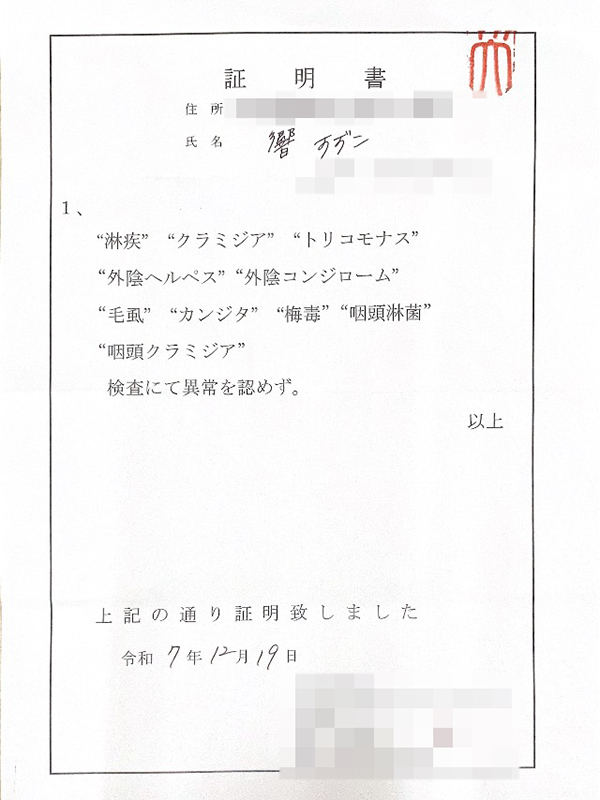 証明書
住所
氏名 響 すずこ
1、
“淋疾” “クラミジア” “トリコモナス”
“外陰ヘルペス” “外陰コンジローム”
“毛虱” “カンジタ” “梅毒” “咽頭淋菌”
“咽頭クラミジア”
検査にて異常を認めず。
以上
上記の通り証明致しました
令和 7年12月19日